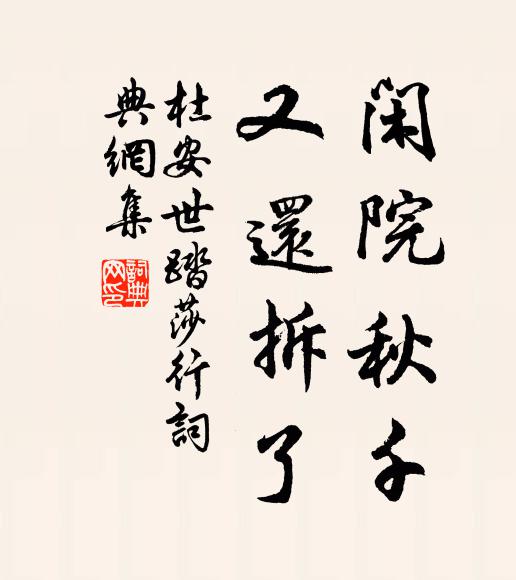 閑院秋千
又還拆了
杜安世踏莎行詞
典網集
詞典
网印